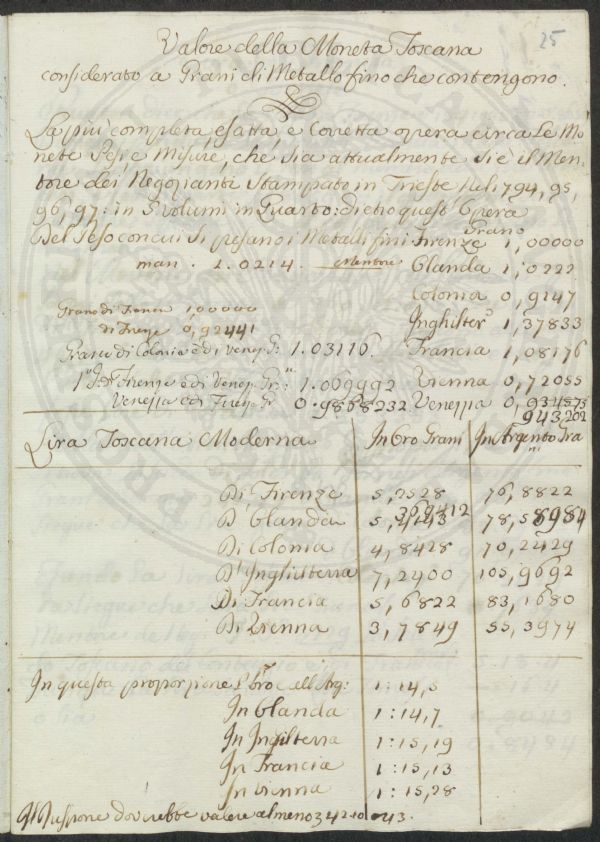 25
Valore della Moneta Toscana
considerato a Grani di Metallo fino che contengono.
La più completa, esatta, e Coretta opera circa Le Mo
nete Pesi e Misure, che sia attualmente si è il Men
tore dei Negozianti Stampato in Trieste nel 1794, 95,
96, 97: in 5 Volumi in Quarto: dietro quest' Opera
Grano
Del Peso con cui si pesano i Metalli fini Firenze 1,00000
man. 1.0214. Mentore. Olanda 1,0222
Colonia 0,9147
Grano di Francia 1,00000 Inghilter.ª 1,37833
di Firenze 0,92441
Grano di Colonia è di Venez. Gr: 1.03116. Francia 1,08176
1" Gr. di Firenze è di Venez. Gr: 1.069992 Vienna 0,72055
Venezia è di Firenze Gr. 0.9868232 Venezia 0,934575
943202
Lira Toscana Moderna In Oro Grani In Argento Gra
ni
Di Firenze 5,2528 76,8822
369412
D'Olanda 5, 78,58984
Di Colonia 4,8428 70,2429
D'Inghilterra 7,2400 105,9692
Di Francia 5,6822 83,1680
Di Vienna 3,7849 55,3974
In questa proporzione l'Oro all'Arg: 1:14,5
In Olanda 1:14,7
In Inghilterra 1:15,19
In Francia 1:15,13
In Vienna 1:15,28
Il Ruspone dovrebbe valere almeno 342.10 43.